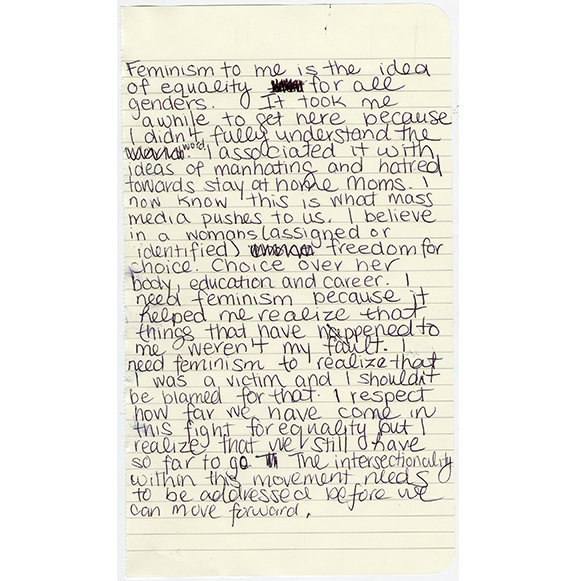 Feminism to me is the idea
of equality for all
genders. It took me
awhile to get here because
I didn't fully understand the
word. I associated it with
ideas of manhating and hatred
towards stay at home moms. I
now know this is what mass
media pushes to us. I believe
in a womans (assigned or
identified) freedom for
choice. Choice over her
body, education and career. I
need feminism because it
helped me realize that
things that have happened to
me weren't my fault. I
need feminism to realize that
I was a victim and I shouldn't
be blamed for that. I respect
how far we have come in
this fight for equality but I
realize that we still have
so far to go. The intersectionality
within this movement needs
to be addressed before we
can move forward.